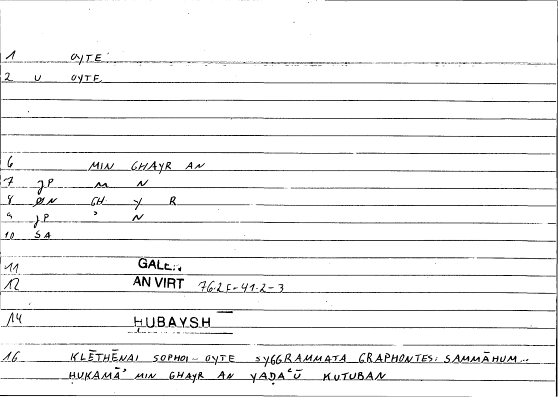 1 OYTE
2 U OYTE
6 MIN GHAYR AN
7 JP M N
8 ØN GH Y R
9 JP ʾ N
10 SA
11 GALEN
12 AN VIRT 76.2F-41.2-3
14 ḤUBAYSH
16 KLĒTHĒNAI SOPHOI - OYTE SYGGRAMMATA GRAPHONTES: SAMMĀHUM...
ḤUKAMĀʾ MIN GHAYR AN YAḌAʿŪ KUTUBAN